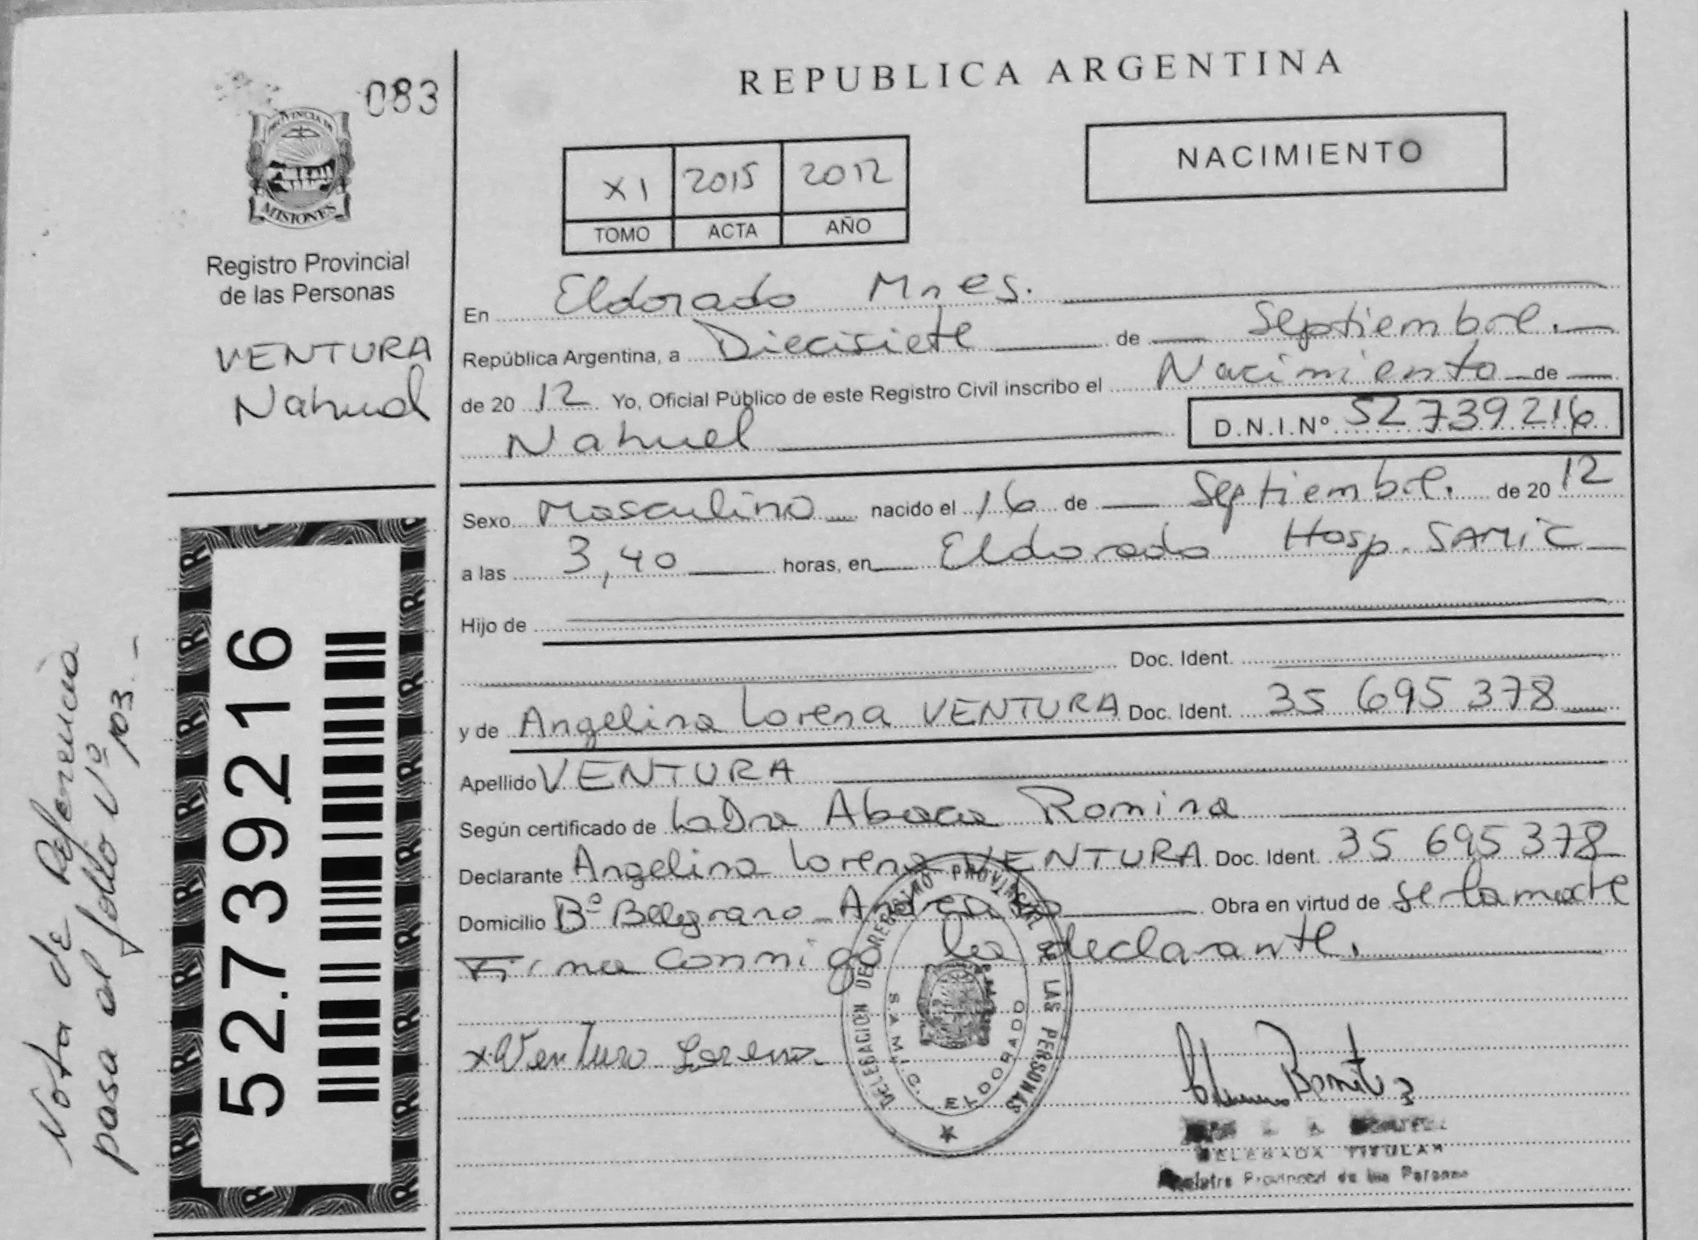 083
PROVINCIA DE
MISIONES
Registro Provincial
de las Personas
VENTURA
Nahuel
52.739.216
Nota de Referencia
pasa al folio Nº 103.-
REPUBLICA ARGENTINA
XI 2015 2012
TOMO ACTA AÑO
NACIMIENTO
En Eldorado Mnes.
República Argentina, a Diecisiete de Septiembre.
de 2012 Yo, Oficial Público de este Registro Civil inscribo el Nacimiento de
Nahuel D.N.I.Nº 52739216
Sexo Masculino nacido el 16 de Septiembre. de 2012
a las 3,40 horas, en Eldorado Hosp. SAMIC
Hijo de
Doc. Ident.
y de Angelina Lorena VENTURA Doc. Ident. 35 695 378
Apellido VENTURA
Según certificado de La Dra Romina
Declarante Angelina Lorena VENTURA Doc. Ident. 35 695 378
Domicilio Bº Belgrano Obra en virtud de ser la madre
Firma conmigo la declarante.
x Ventura Lorena
DELEGACION DEL REGISTRO PROVINCIAL DE LAS PERSONAS
S.A.M.I.C. ELDORADO
DELEGADA TITULAR
Registro Provincial de las Personas